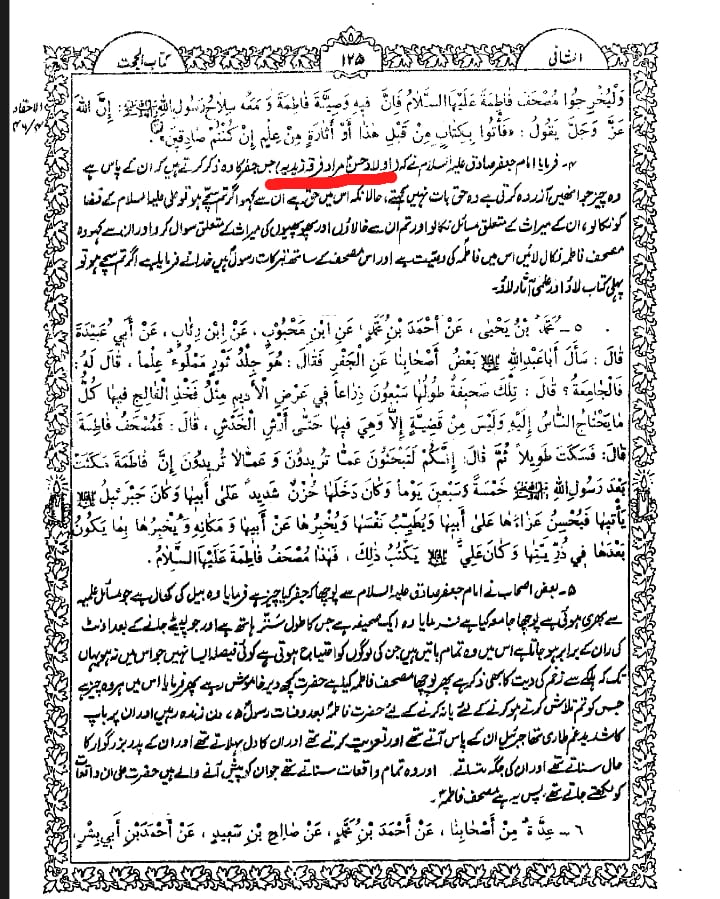 الشافی
۱۲۵
کتاب الحجت
وَلْيُخْرِجُوا مُصْحَفَ فَاطِمَةَ عَلَيْهَا السَّلَامُ فَإِنَّ فِيهِ وَصِيَّةَ فَاطِمَةَ وَ مَعَهُ سِلَاحُ رَسُولِ اللهِ ﷺ: إِنَّ اللهَ
الاحقاف
۴۶/۴
عَزَّ وَجَلَّ يَقُولُ: «فَأْتُوا بِكِتَابٍ مِنْ قَبْلِ هٰذَا أَوْ أَثَارَةٍ مِنْ عِلْمٍ إِنْ كُنْتُمْ صَادِقِينَ»
۴۔ فرمایا امام جعفر صادق علیہ السلام نے کہ (اولاد حسنؑ مراد فرقہ زیدیہ) جس جفر کا وہ ذکر کرتے ہیں کہ ان کے پاس ہے
وہ چیز جو انھیں آزردہ کرتی ہے وہ حق بات نہیں کہتے، حالانکہ اس میں حق ہے ان سے کہو اگر تم سچے ہو تو علی علیہ السلام کے قضایا
کو نکالو، ان کے میراث کے متعلق مسائل نکالو اور تم ان سے خالاؤں اور پھوپھیوں کی میراث کے متعلق سوال کرو اور ان سے کہو وہ
مصحف فاطمہ نکال لائیں اس میں فاطمہؑ کی وصیت ہے اور اس مصحف کے ساتھ تبرکات رسولؐ ہیں خدا نے فرمایا ہے اگر تم سچے ہو تو
پہلی کتاب لاؤ اور علمی آثار لاؤ۔
٥ ـ مُحَمَّدُ بْنُ يَحْيَى، عَنْ أَحْمَدَ بْنِ مُحَمَّدٍ، عَنِ ابْنِ مَحْبُوبٍ، عَنِ ابْنِ رِئَابٍ، عَنْ أَبِي عُبَيْدَةَ
قَالَ: سَأَلَ أَبَا عَبْدِ اللهِ ؑ بَعْضُ أَصْحَابِنَا عَنِ الْجَفْرِ فَقَالَ: هُوَ جِلْدُ ثَوْرٍ مَمْلُوءٌ عِلْماً، قَالَ لَهُ:
فَالْجَامِعَةُ؟ قَالَ: تِلْكَ صَحِيفَةٌ طُولُهَا سَبْعُونَ ذِرَاعاً فِي عَرْضِ الْأَدِيمِ مِثْلُ فَخِذِ الْفَالِجِ فِيهَا كُلُّ
مَا يَحْتَاجُ النَّاسُ إِلَيْهِ وَلَيْسَ مِنْ قَضِيَّةٍ إِلَّا وَهِيَ فِيهَا حَتَّى أَرْشُ الْخَدْشِ، قَالَ: فَمُصْحَفُ فَاطِمَةَ
قَالَ: فَسَكَتَ طَوِيلاً ثُمَّ قَالَ: إِنَّكُمْ لَتَبْحَثُونَ عَمَّا تُرِيدُونَ وَ عَمَّا لَا تُرِيدُونَ إِنَّ فَاطِمَةَ مَكَثَتْ
بَعْدَ رَسُولِ اللهِ ﷺ خَمْسَةً وَسَبْعِينَ يَوْماً وَكَانَ دَخَلَهَا حُزْنٌ شَدِيدٌ عَلَى أَبِيهَا وَكَانَ جَبْرَئِيلُ ؑ
يَأْتِيهَا فَيُحْسِنُ عَزَاءَهَا عَلَى أَبِيهَا وَيُطَيِّبُ نَفْسَهَا وَيُخْبِرُهَا عَنْ أَبِيهَا وَ مَكَانِهِ وَيُخْبِرُهَا بِمَا يَكُونُ
بَعْدَهَا فِي ذُرِّيَّتِهَا وَ كَانَ عَلِيٌّ ؑ يَكْتُبُ ذٰلِكَ، فَهٰذَا مُصْحَفُ فَاطِمَةَ عَلَيْهَا السَّلَامُ.
۵۔ بعض اصحاب نے امام جعفر صادق علیہ السلام سے پوچھا کہ جفر کیا چیز ہے فرمایا وہ بیل کی کھال ہے جو مسائل علمیہ
سے بھری ہوئی ہے پوچھا جامعہ کیا ہے فرمایا وہ ایک صحیفہ ہے جس کا طول ستّر ہاتھ ہے اور جو لپیٹے جانے کے بعد اونٹ
کی ران کے برابر ہو جاتا ہے اس میں وہ تمام باتیں ہیں جن کی لوگوں کو احتیاج ہوتی ہے کوئی فیصلہ ایسا نہیں جو اس میں نہ ہو یہاں
تک کہ ہلکے سے زخم کی دیت کا بھی ذکر ہے پھر پوچھا مصحف فاطمہ کیا ہے حضرت کچھ دیر خاموش رہے پھر فرمایا اس میں ہر وہ چیز ہے
جس کو تم تلاش کرتے ہو کرنے کے لئے یا نہ کرنے کے لئے حضرت فاطمہؑ بعد وفات رسولؐ ۷۵ دن زندہ رہیں اور ان پر باپ
کا شدید غم طاری تھا جبرئیل ان کے پاس آتے تھے اور تعزیت کرتے تھے اور ان کا دل بہلاتے تھے اور ان کے پدر بزرگوار کا
حال سناتے تھے اور ان کی جگہ بتلاتے۔ اور وہ تمام واقعات سناتے تھے جو ان کو پیش آنے والے ہیں حضرت علی ان واقعات
کو لکھتے جاتے تھے، پس یہ ہے مصحف فاطمہؑ۔
٦ ـ عِدَّةٌ مِنْ أَصْحَابِنَا، عَنْ أَحْمَدَ بْنِ مُحَمَّدٍ، عَنْ صَالِحِ بْنِ سَعِيدٍ، عَنْ أَحْمَدَ بْنِ أَبِي بِشْرٍ،